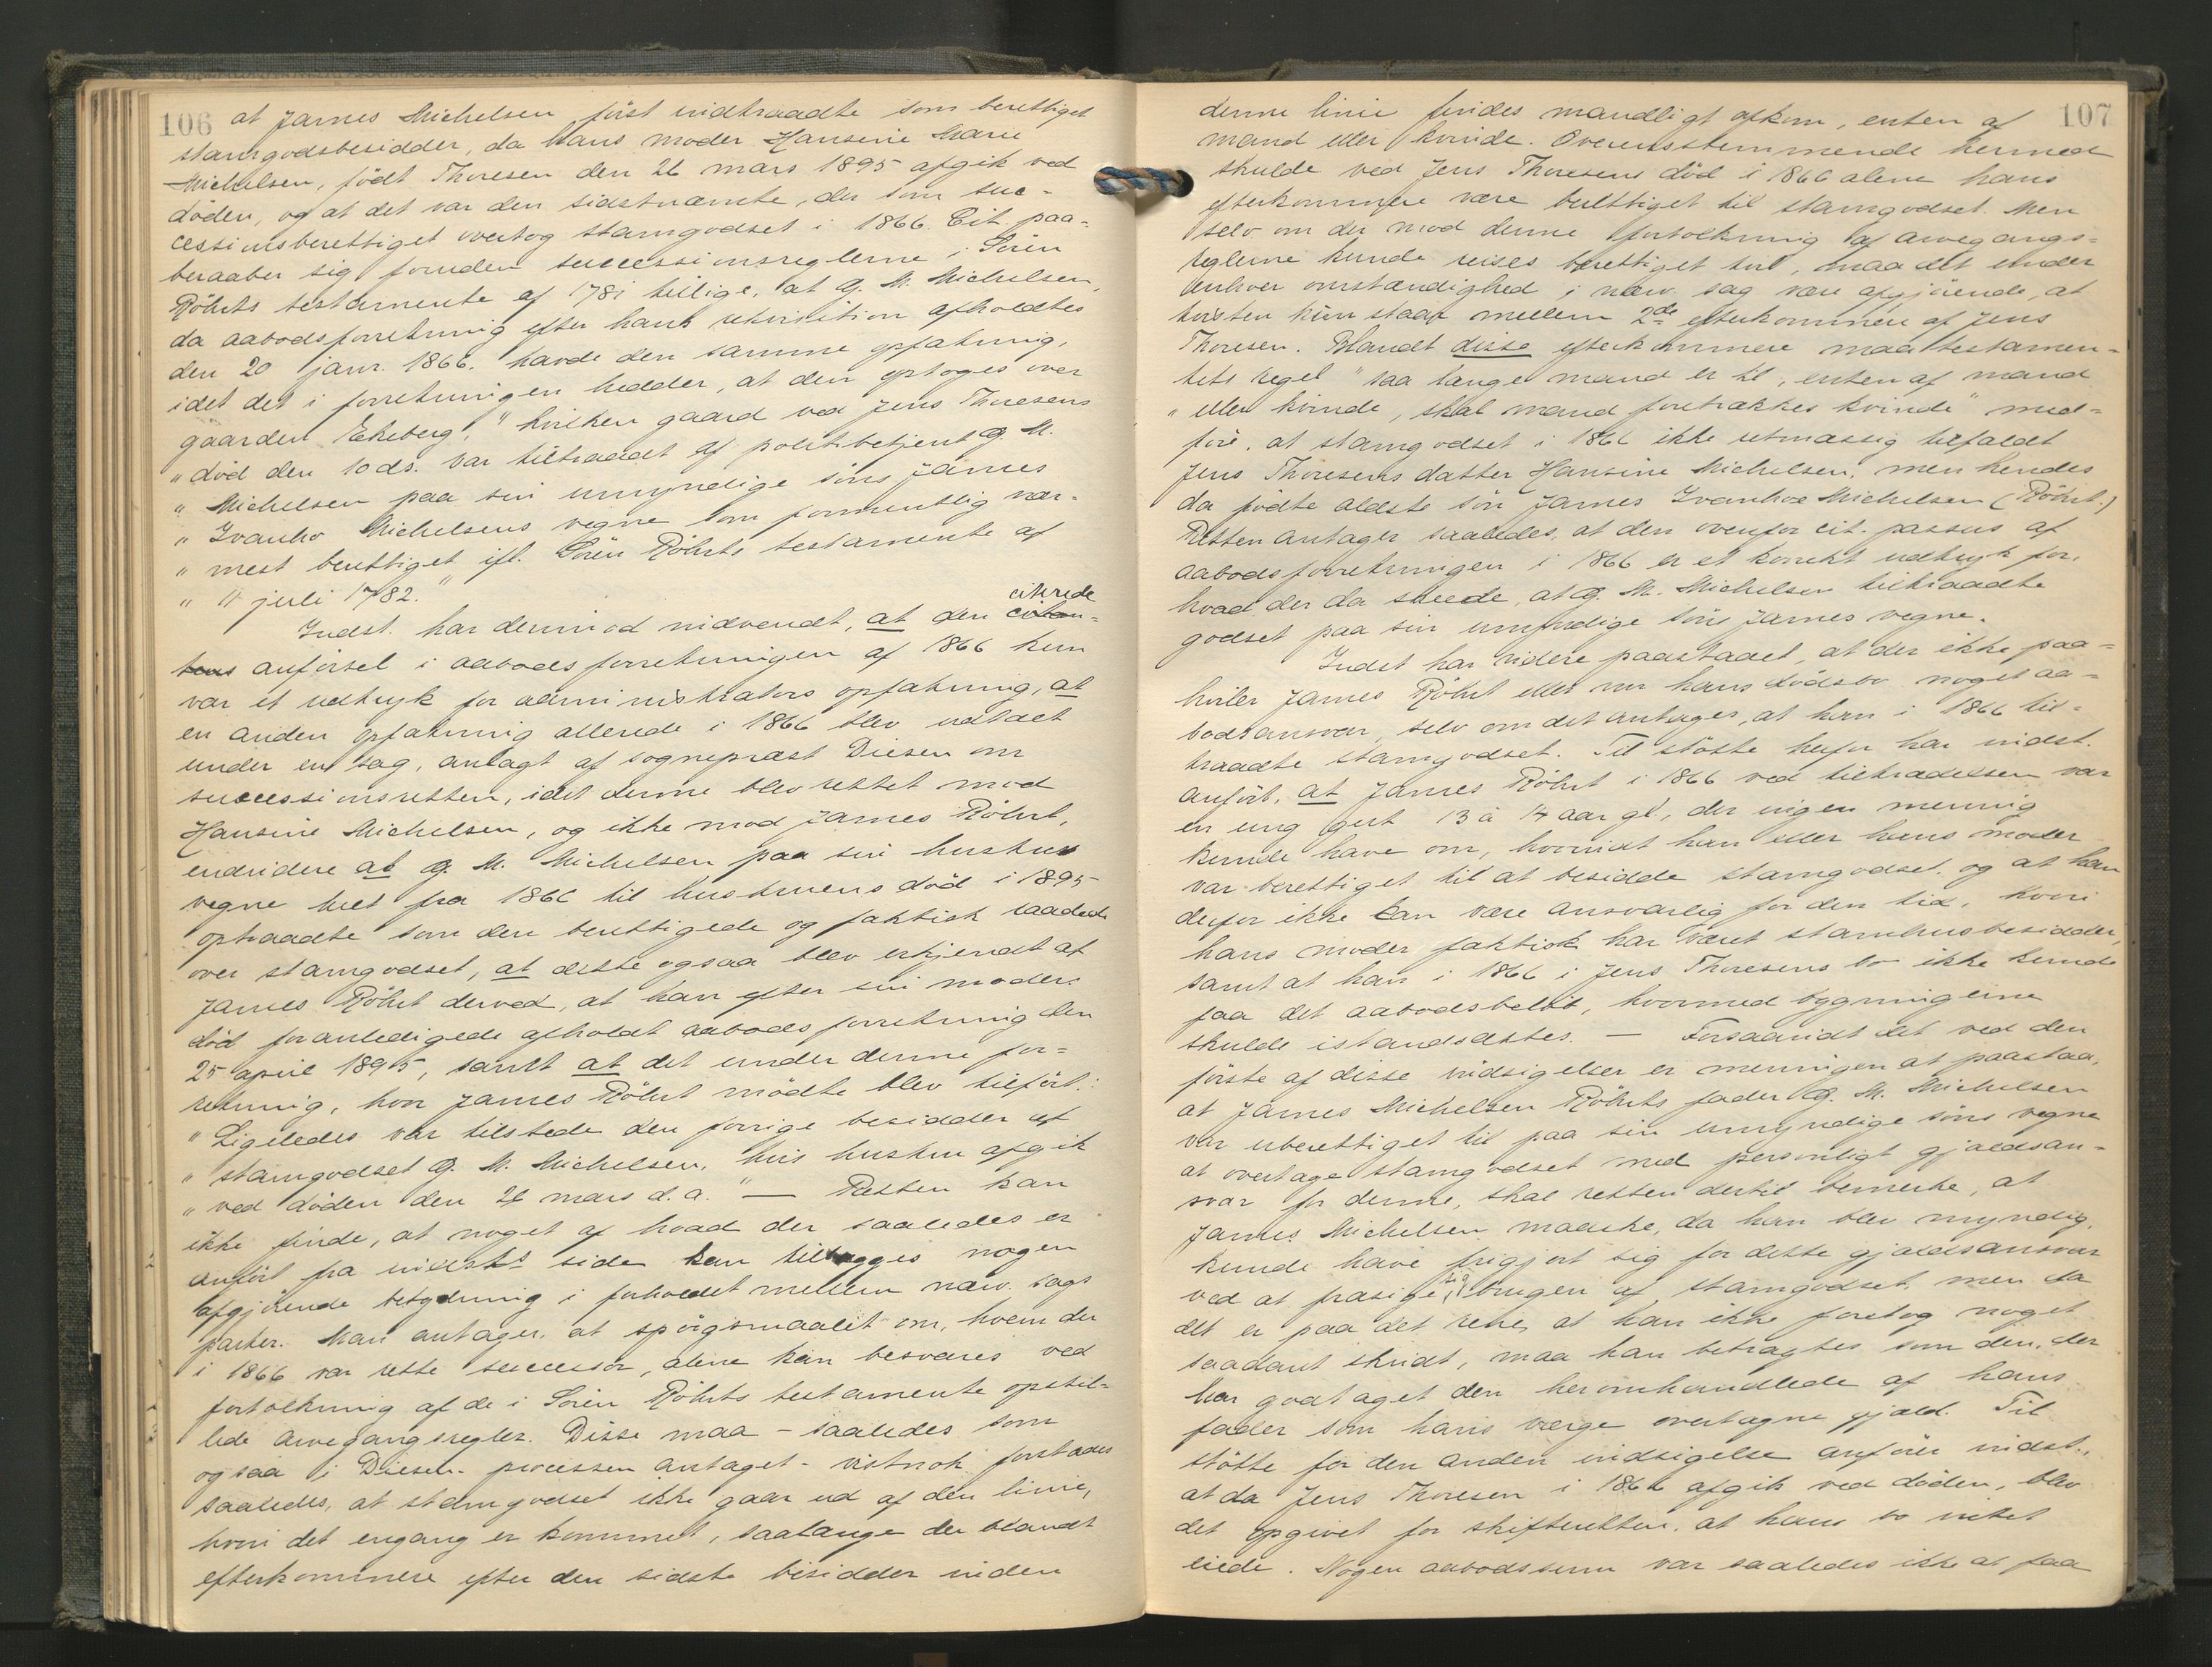 106
at James Michelsen först indtraadte som berettiget
stamgodsbesidder, da hans moder Hansine Marie
Michelsen, födt Thoresen den 26 mars 1895 afgik ved
döden, og at det var den sidstnævnte, der som suc-
cessionsberettiget overtog stamgodset i 1866. Cit. paa-
beraaber sig foruden successionsreglerne i Sören
Röhrts testamente af 1781 tillige, at G. M. Michelsen,
da aabodsforretning efter hans rekvisition afholdtes
den 20 janr. 1866, havde den samme opfatning,
idet det i forretningen hedder, at den optoges over
gaarden Ekeberg, "hvilken gaard ved Jens Thoresens
"död den 10 ds. var tiltraadt af politibetjent G. M.
"Michelsen paa sin umyndige söns James
"Ivanho Michelsens vegne som formentlig nær-
"mest berettiget ifl. Sören Röhrts testamente af
"11 juli 1782."
Indst. har derimod indvendt, at den citerede
anförsel i aabodsforretningen af 1866 kun
var et udtryk for administrators opfatning, at
en anden opfatning allerede i 1866 blev udtalt
under en sag, anlagt af sogneprest Diesen om
successionsretten, idet denne blev rettet mod
Hansine Michelsen, og ikke mod James Röhrt,
endvidere at G. M. Michelsen paa sin hustrus
vegne helt fra 1866 til hustruens död i 1895
optraadte som den berettigede og faktisk raadede
over stamgodset, at dette ogsaa blev erkjendt af
James Röhrt derved, at han efter sin moders
död foranledigede afholdt aabodsforretning den
25 april 1895, samt at det under denne for-
retning, hvor James Röhrt mödte blev tilfört:
"Ligeledes var tilstede den forrige besidder af
"stamgodset G. M. Michelsen, hvis hustru afgik
"ved döden den 26 mars d.a." — Retten kan
ikke finde, at noget af hvad der saaledes er
anfört fra indsts side kan tillægges nogen
afgjörende betydning i forholdet mellem nærv. sags
parter. Man antager, at spörgsmaalet om, hvem der
i 1866 var rette successor, alene kan besvares ved
fortolkning af de i Sören Röhrts testamente opstil-
lede arvegangsregler. Disse maa - saaledes som
ogsaa i Diesen-processen antaget - vistnok forstaaes
saaledes, at stamgodset ikke gaar ud af den linie,
hvori det engang er kommet, saalænge der blandt
efterkommere efter den sidste besidder inden
107
denne linie findes mandligt afkom, enten af
mand eller kvinde. Overensstemmende hermed
skulde ved Jens Thoresens död i 1866 alene hans
efterkommere være berettiget til stamgodset. Men
selv om der mod denne fortolkning af arvegangs-
reglerne kunde reises berettiget tvil, maa det under
enhver omstændighed i nærv. sag være afgjörende, at
tvisten kun staar mellem 2de efterkommere af Jens
Thoresen. Blandt disse efterkommere maa testamen-
tets regel "saa længe mand er til, enten af mand
"eller kvinde, skal mand foretrækkes kvinde" med-
före, at stamgodset i 1866 ikke retmæssig tilfaldt
Jens Thoresens datter Hansine Michelsen, men hendes
da födte ældste sön James Ivanhoe Michelsen (Röhrt.)
Retten antager saaledes, at den ovenfor cit. passus af
aabodsforretningen i 1866 er et korrekt udtryk for,
hvad der da skeede, at G. M. Michelsen tiltraadte
godset paa sin umyndige söns James vegne.
Indst har videre paastaaet, at der ikke paa-
hviler James Röhrt eller nu hans dödsbo noget aa-
bodsansvar, selv om det antages, at han i 1866 til-
traadte stamgodset. Til stötte herfor har indst.
anfört, at James Röhrt i 1866 ved tiltrædelsen var
en ung gut 13 à 14 aar gl., der ingen mening
kunde have om, hvorvidt han eller hans moder
var berettiget til at besidde stamgodset, og at han
derfor ikke kan være ansvarlig for den tid, hvori
hans moder faktisk har været stamhusbesidder,
samt at han i 1866 i Jens Thoresens bo ikke kunde
faa det aabodsbelöb, hvormed bygningerne
skulde istandsættes. — Forsaavidt det ved den
förste af disse indsigelser er meningen at paastaa,
at James Michelsen Röhrts fader G. M. Michelsen
var uberettiget til paa sin umyndige söns vegne
at overtage stamgodset med personligt gjældsan-
svar for denne, skal retten dertil bemerke, at
James Michelsen maaske, da han blev myndig,
kunde have frigjort sig for dette gjældsansvar
ved at frasige sig brugen af stamgodset, men da
det er paa det rene, at han ikke foretog noget
saadant skridt, maa han betragtes som den, der
har godtaget den heromhandlede af hans
fader som hans værge overtagne gjæld. Til
stötte for den anden indsigelse anförer indst.,
at da Jens Thoresen i 1866 afgik ved döden, blev
det opgivet for skifteretten, at hans bo intet
eiede. Nogen aabodssum var saaledes ikke at faa